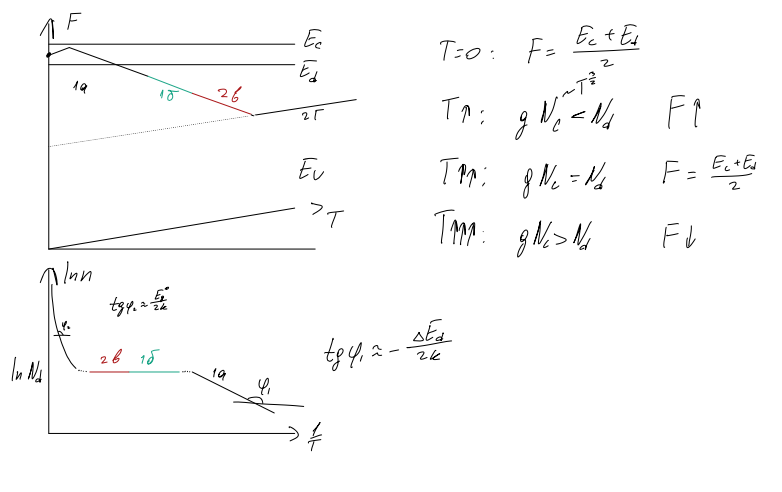 F
E_c
E_d
1а
1б
2в
2г
E_v
T
T=0: F = (E_c + E_d)/2
T↑: gN_c < N_d F↑
~T^(3/2)
T↑↑: gN_c = N_d F = (E_c+E_d)/2
T↑↑↑: gN_c > N_d F↓
ln n
tgφ₂ ≈ E_g⁰/2k
φ₂
ln N_d
2в 1б
1а
φ₁
1/T
tgφ₁ ≈ - ΔE_d/2k